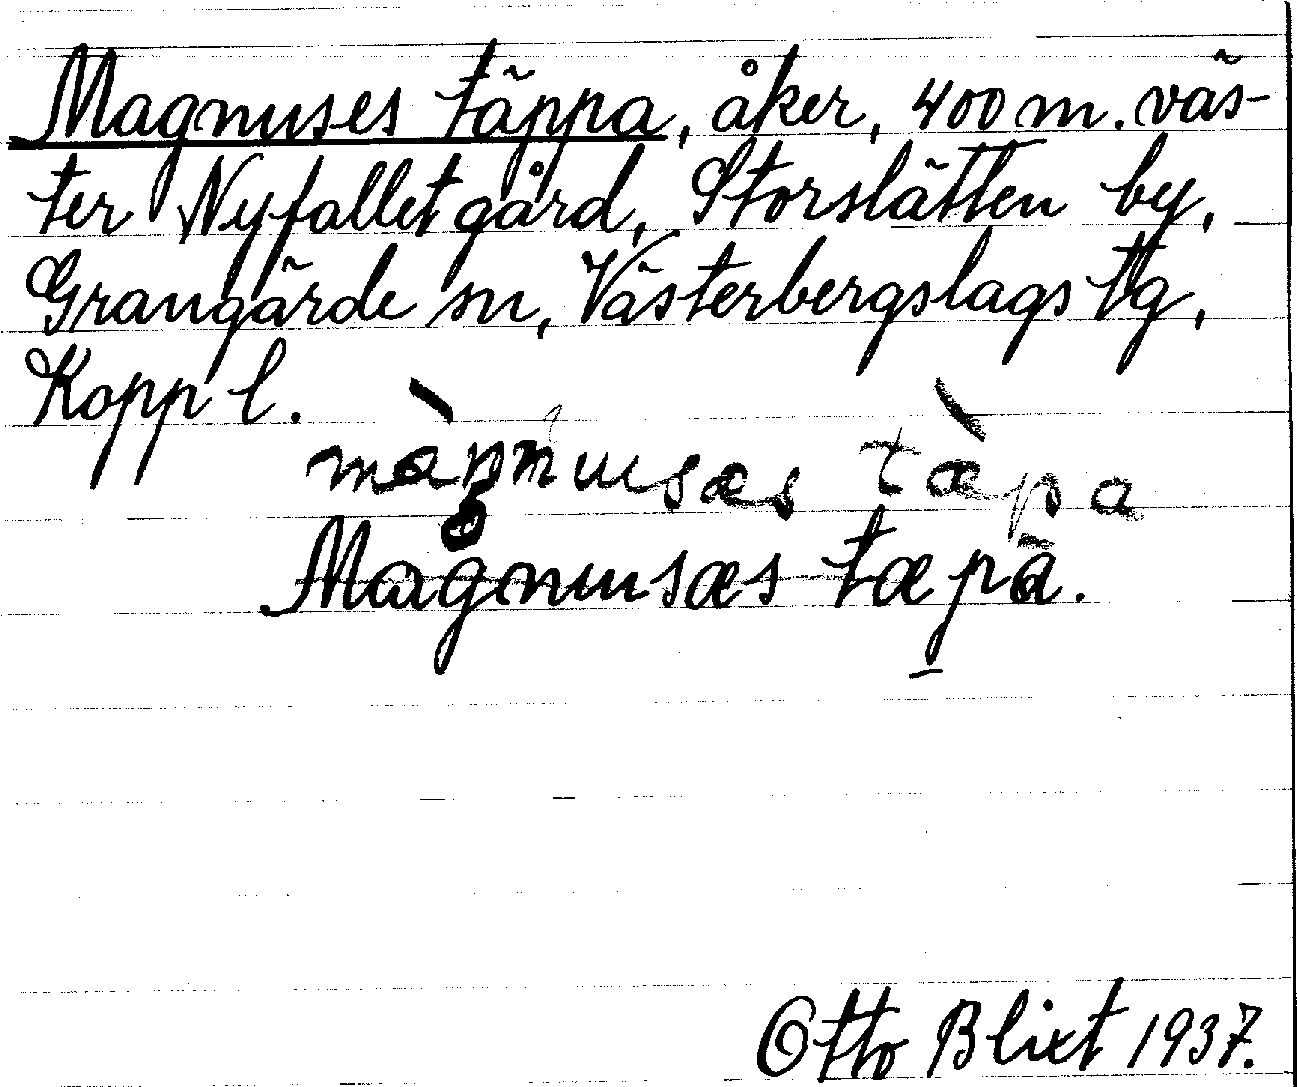 Magnuses täppa, åker, 400 m. väs-
ter Nyfallet gård, Storslätten by,
Grangärde sn, Västerbergslags tg,
Kopp l.
màŋnusæs tæ̀pa
Magnusæs tæpa.
Otto Blixt 1937.